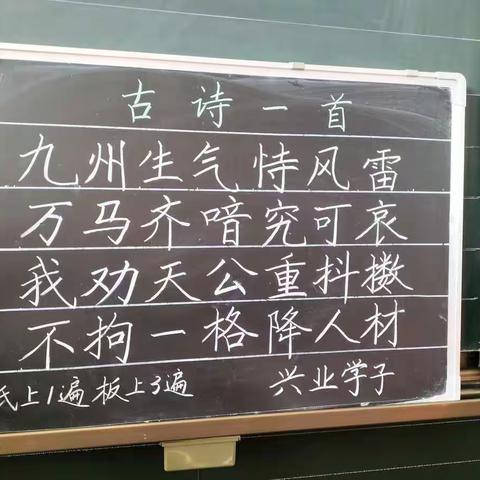 古诗一首
九州生气恃风雷
万马齐喑究可哀
我劝天公重抖擞
不拘一格降人材
纸上1遍板上3遍 兴业学子